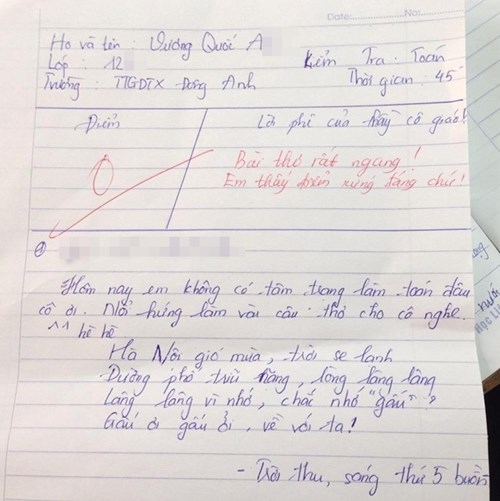 Date: No:
Họ và tên : Vương Quốc A
Lớp : 12
Kiểm Tra : Toán
Trường : TTGDTX Đông Anh
Thời gian : 45'
Điểm
Lời phê của thầy cô giáo!
0
Bài thơ rất ngang!
Em thấy điểm xứng đáng chứ!
①
Hôm nay em không có tâm trạng làm toán đâu
cô ơi. Nổi hứng làm vài câu thơ cho cô nghe.
^^ hề hề
Hà Nội gió mùa, trời se lạnh
Đường phố trĩu nặng, lòng lâng lâng
Lâng lâng vì nhớ, chắc nhớ "gấu"?
Gấu ơi gấu ởi, về với ta!
- Trời thu, sáng thứ 5 buồn